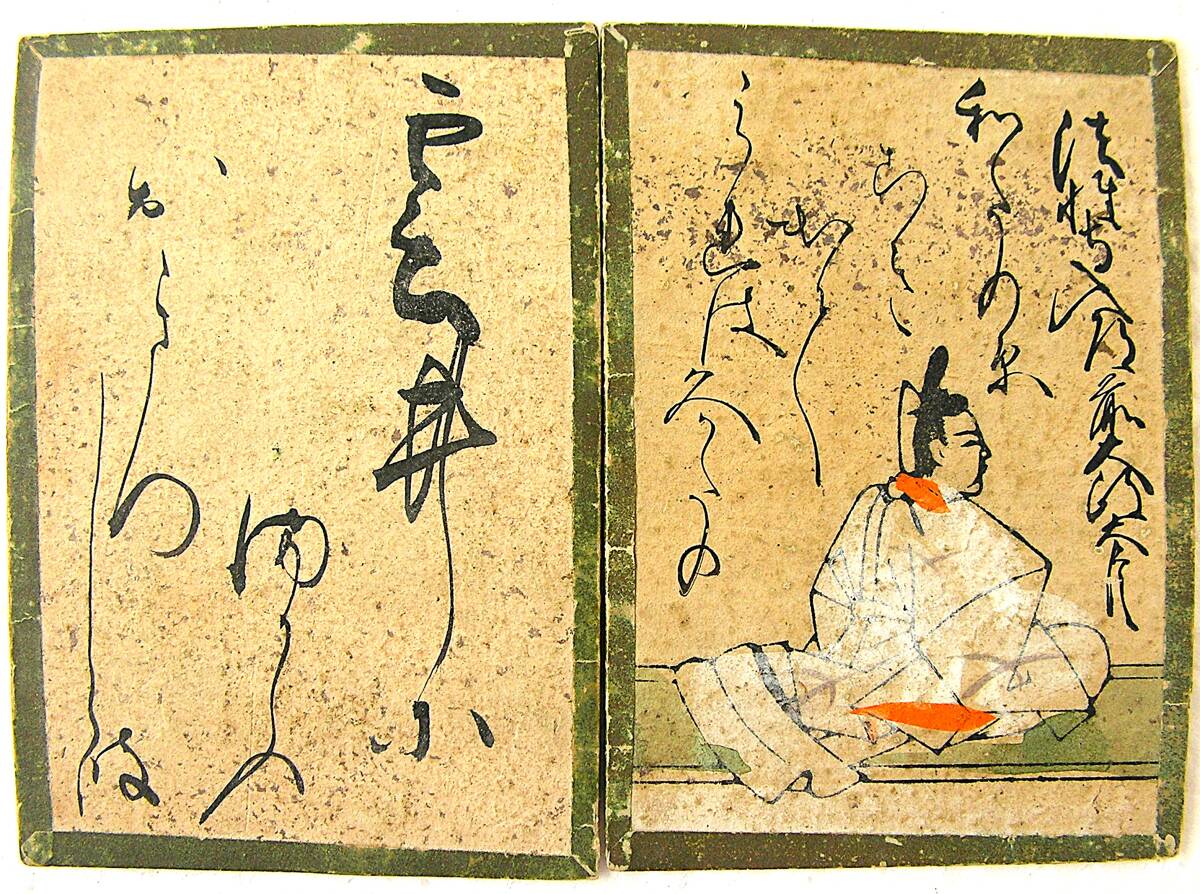 法性寺入道前大政大臣
和たの原
こき
出て
みれは久かたの
雲井に
まかふ
おきつ
しら波